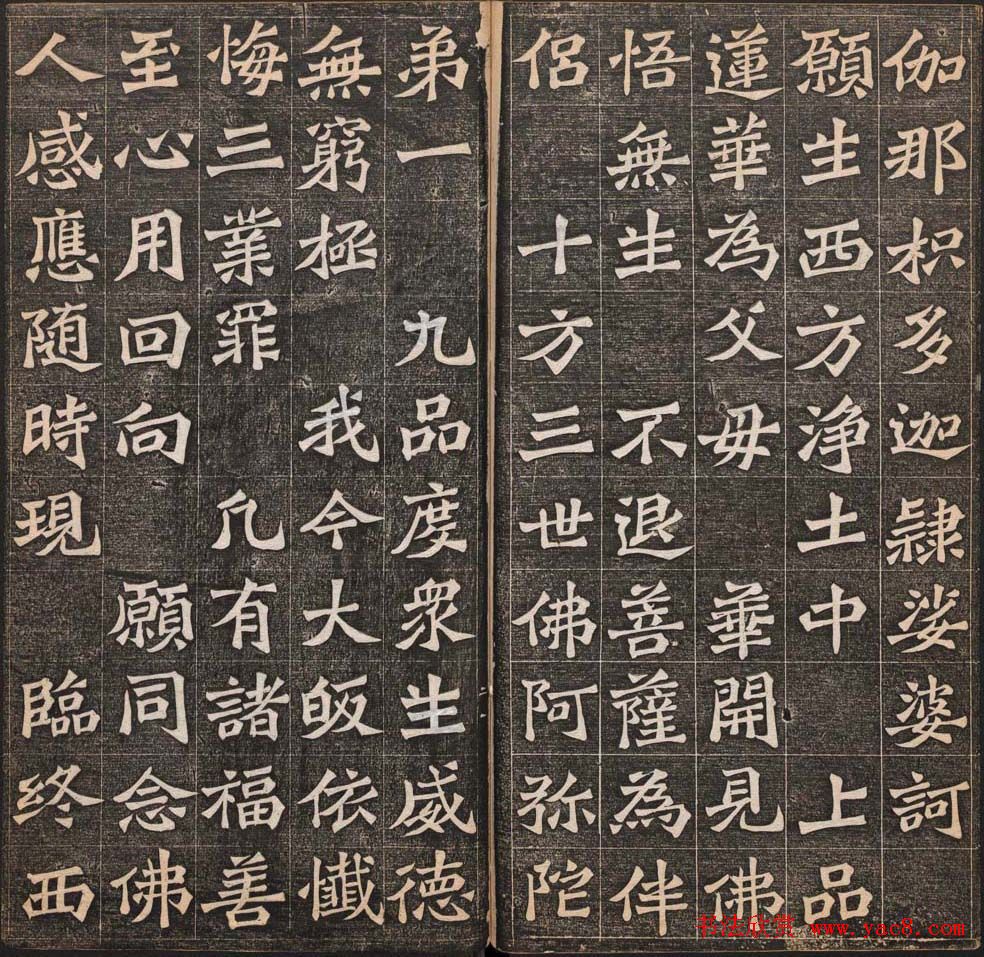 伽那枳多迦隸娑婆訶
願生西方净土中 上品
蓮華為父毋 華開見佛
悟無生 不退菩薩為伴
侣 十方三世佛阿弥陀
弟一 九品度衆生威德
無窮極 我今大皈依懺
悔三業罪 凡有諸福善
至心用回向 願同念佛
人感應随時現 臨终西
书法欣赏
www.yac8.com